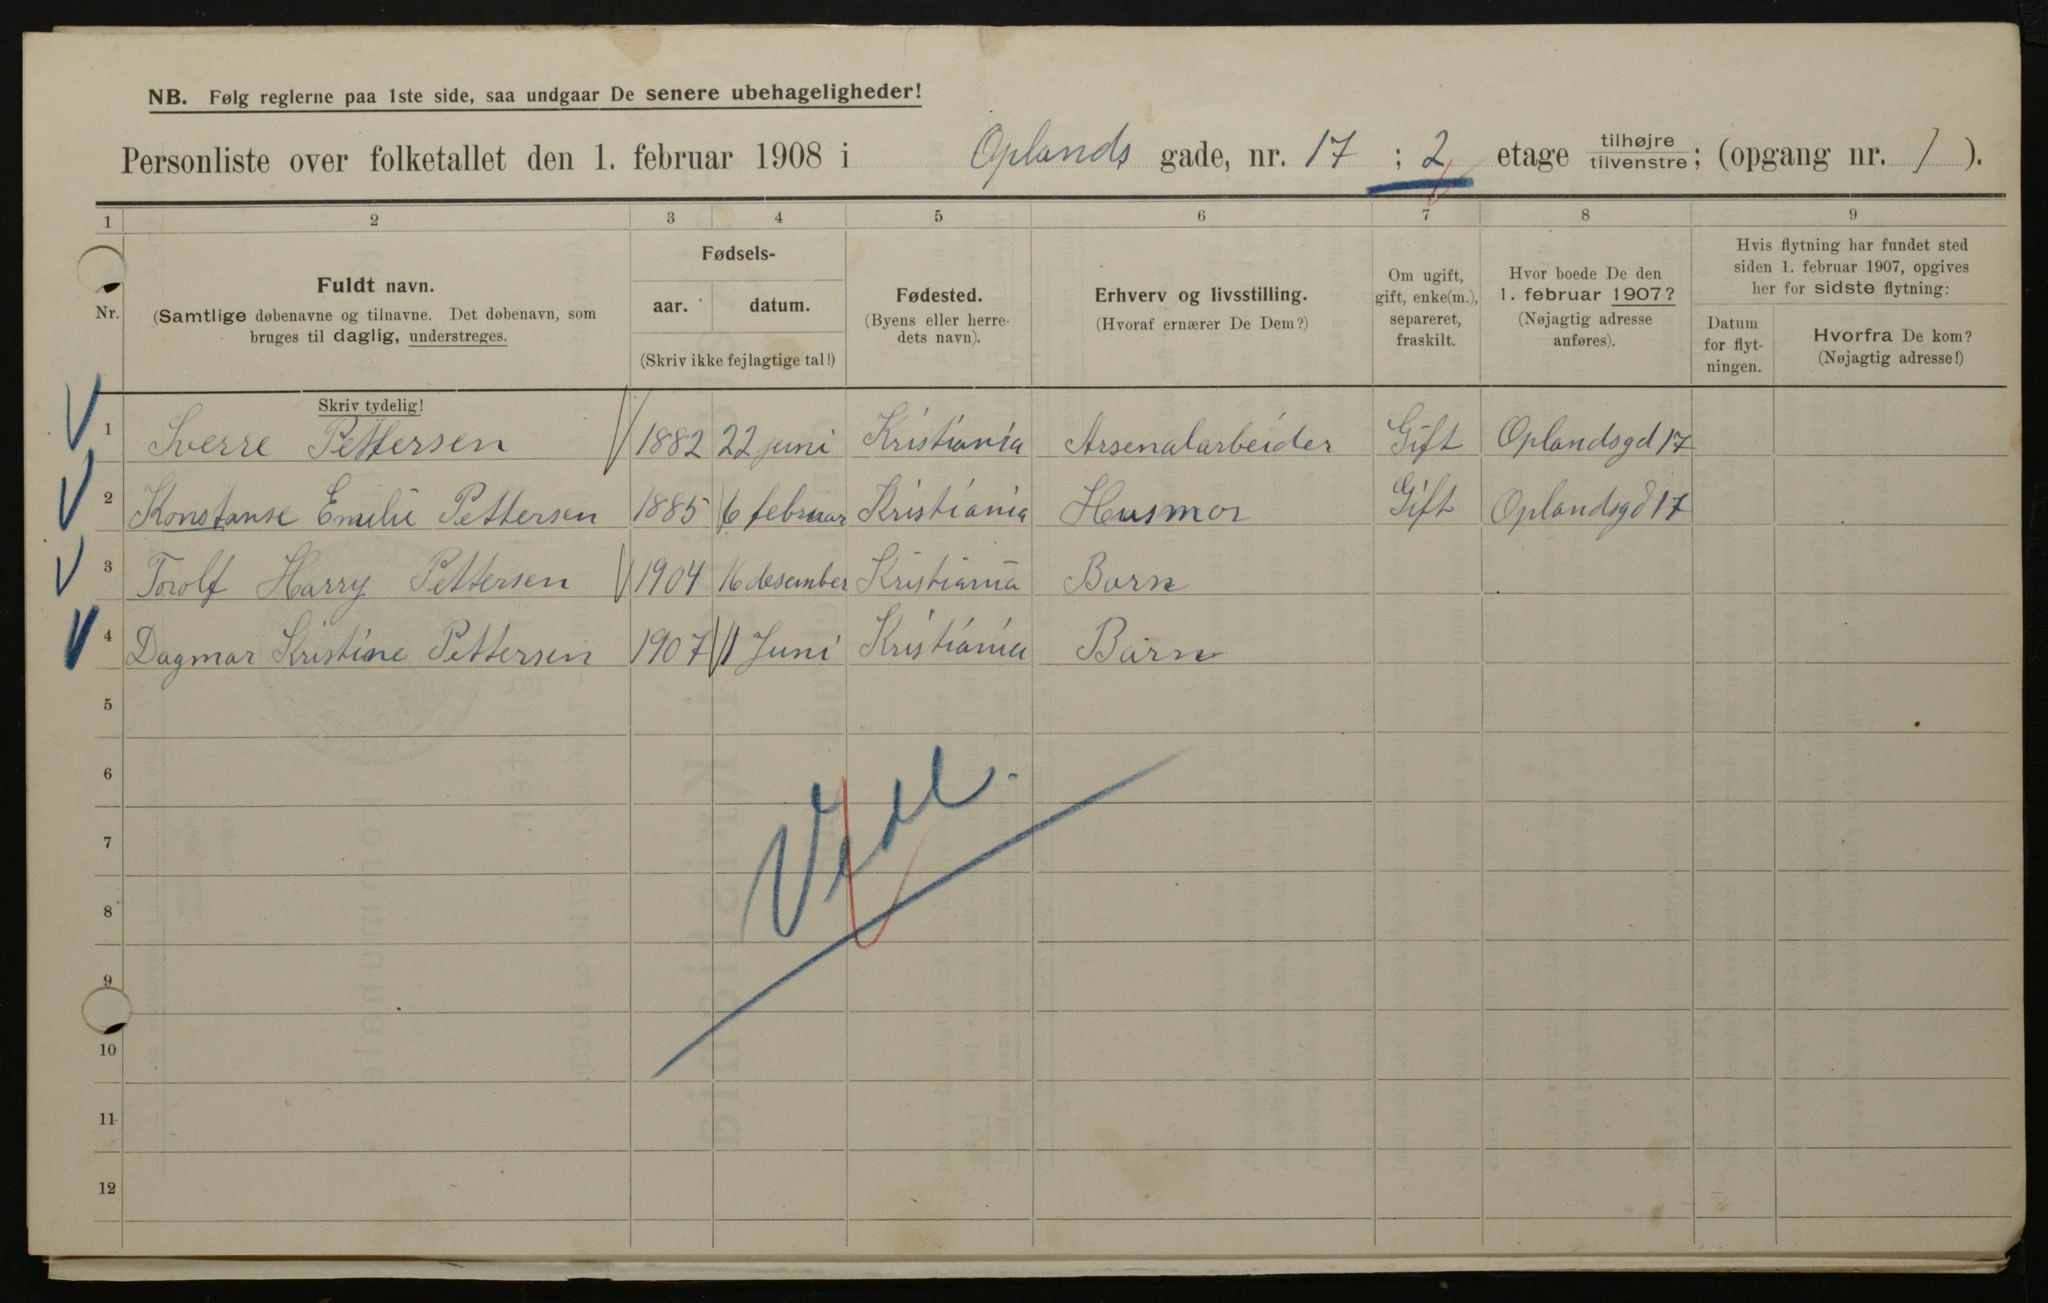 NB. Følg reglerne paa 1ste side, saa undgaar De senere ubehageligheder!
Personliste over folketallet den 1. februar 1908 i Oplands gade, nr. 17 ; 2 etage tilhøjre tilvenstre; (opgang nr. 1 ).
1 2 3 4 5 6 7 8 9
Nr.
Fuldt navn.
(Samtlige døbenavne og tilnavne. Det døbenavn, som
bruges til daglig, understreges.
Fødsels-
aar. datum.
(Skriv ikke fejlagtige tal!)
Fødested.
(Byens eller herre-
dets navn).
Erhverv og livsstilling.
(Hvoraf ernærer De Dem?)
Om ugift,
gift, enke(m.),
separeret,
fraskilt.
Hvor boede De den
1. februar 1907?
(Nøjagtig adresse
anføres).
Hvis flytning har fundet sted
siden 1. februar 1907, opgives
her for sidste flytning:
Datum
for flyt-
ningen.
Hvorfra De kom?
(Nøjagtig adresse!)
Skriv tydelig!
1 Sverre Pettersen 1882 22 juni Kristiania Arsenalarbeider Gift Oplandsgd 17
2 Konstanse Emilie Pettersen 1885 6 februar Kristiania Husmor Gift Oplandsgd 17
3 Torolf Harry Pettersen 1904 16 desember Kristiania Barn
4 Dagmar Kristine Pettersen 1907 1 Juni Kristiania Barn
5
6
7
8
9
10
11
12